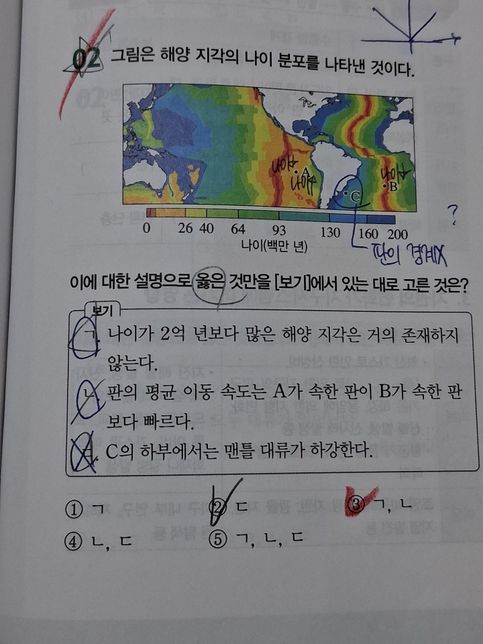 02 그림은 해양 지각의 나이 분포를 나타낸 것이다.
나이
나이
A
C
나이
B
0 26 40 64 93 130 160 200
나이(백만 년)
판의 경계X
?
이에 대한 설명으로 옳은 것만을 [보기]에서 있는 대로 고른 것은?
보기
ㄱ. 나이가 2억 년보다 많은 해양 지각은 거의 존재하지
않는다.
ㄴ. 판의 평균 이동 속도는 A가 속한 판이 B가 속한 판
보다 빠르다.
ㄷ. C의 하부에서는 맨틀 대류가 하강한다.
① ㄱ ② ㄷ ③ ㄱ, ㄴ
④ ㄴ, ㄷ ⑤ ㄱ, ㄴ, ㄷ